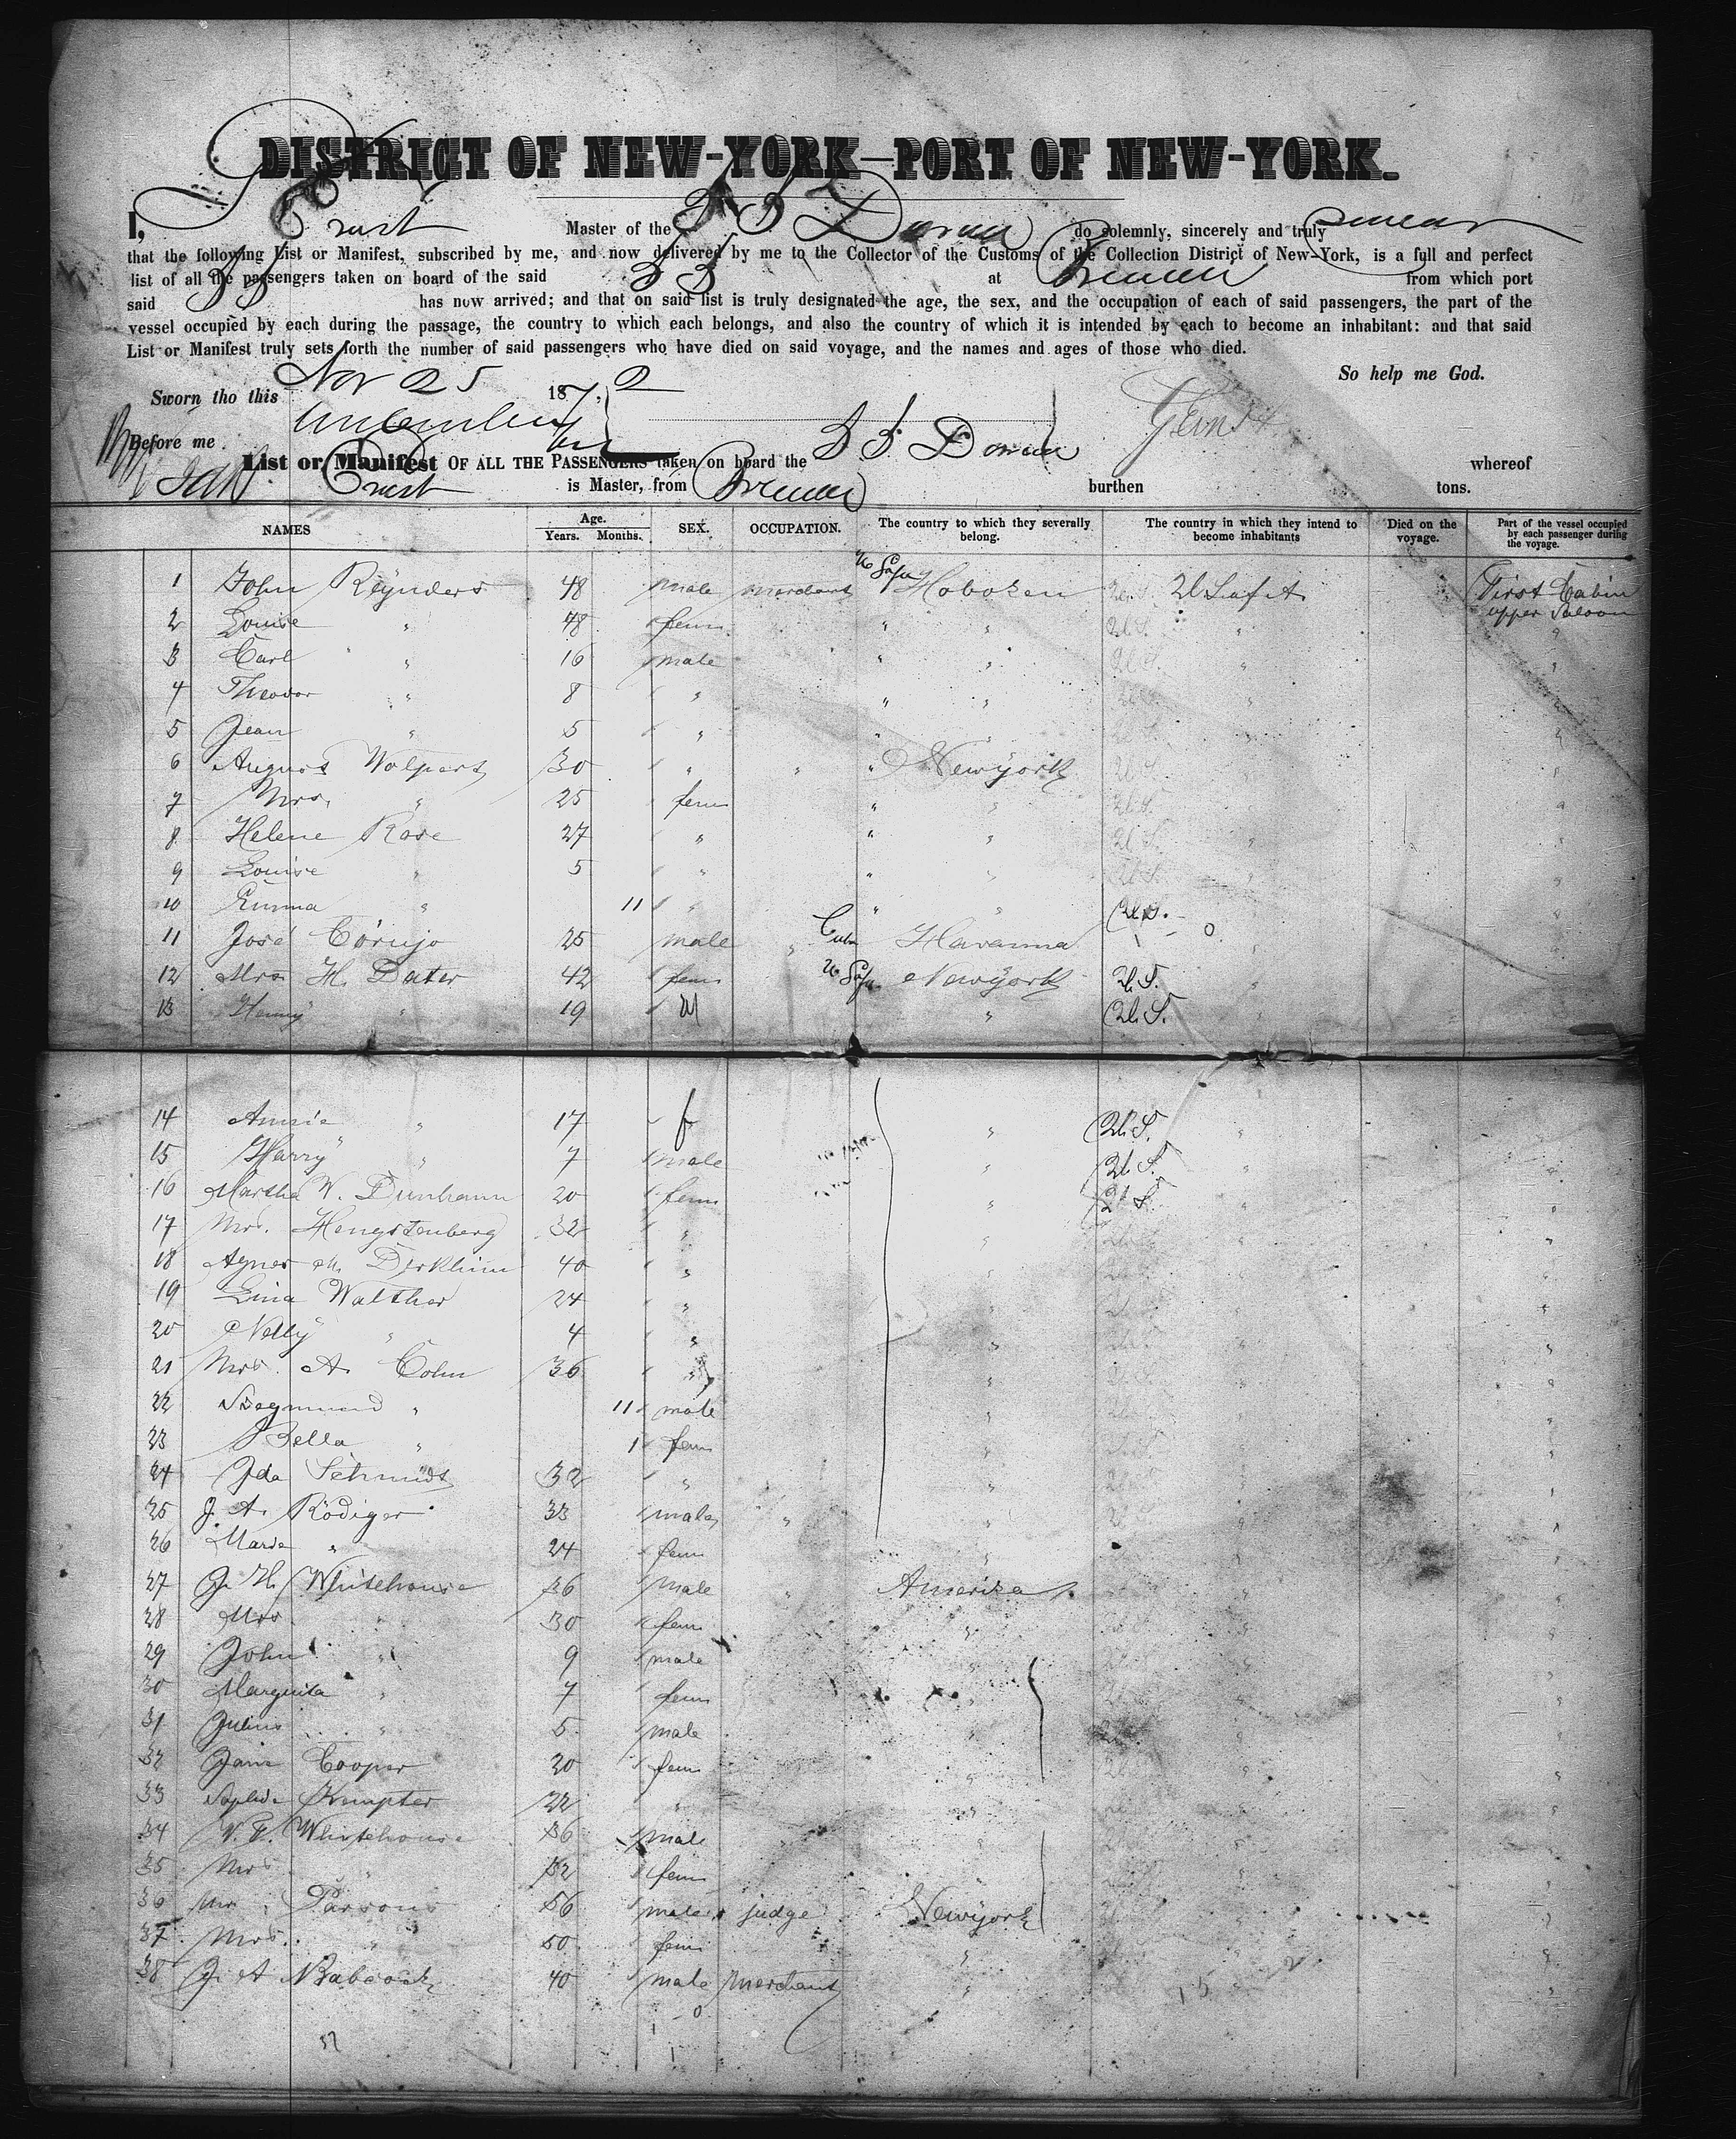 DISTRICT OF NEW-YORK—PORT OF NEW-YORK.
I, G Ernst Master of the S S Donau do solemnly, sincerely and truly swear
that the following List or Manifest, subscribed by me, and now delivered by me to the Collector of the Customs of the Collection District of New-York, is a full and perfect
list of all the passengers taken on board of the said S S at Bremen from which port
said S S has now arrived; and that on said list is truly designated the age, the sex, and the occupation of each of said passengers, the part of the
vessel occupied by each during the passage, the country to which each belongs, and also the country of which it is intended by each to become an inhabitant: and that said
List or Manifest truly sets forth the number of said passengers who have died on said voyage, and the names and ages of those who died.
So help me God.
Sworn tho this Nov 25 1872
Before me
List or Manifest OF ALL THE PASSENGERS taken on board the S S Donau whereof
Ernst is Master, from Bremen burthen tons.
NAMES Age. Years. Months. SEX. OCCUPATION. The country to which they severally belong. The country in which they intend to become inhabitants Died on the voyage. Part of the vessel occupied by each passenger during the voyage.
1 John Reynders 48 male merchant Hoboken U S of A First Cabin upper Saloon
2 Louise " 48 fem " " U.S. " "
3 Carl " 16 male " " U.S. " "
4 Theodor " 8 " " " U.S. " "
5 Jean " 5 " " " U.S. " "
6 August Wolpert 30 " " " Newyork U.S. " "
7 Mrs. " 25 fem " " U.S. " "
8 Helene Rose 27 " " " U.S. " "
9 Louise " 5 " " " U.S. " "
10 Emma " 11 " " " U.S. "
11 José Corujo 25 male " Cuba Havanna "
12 Mrs H. Dater 42 fem Newyork U.S. "
13 Henny " 19 M " U.S. "
14 Annie " 17 f " U.S. "
15 Harry " 7 male " U.S. " "
16 Martha W. Dunham 20 fem " U.S. " "
17 Mrs. Hengstenberg 32 " " " "
18 Agnes M. 40 " " " "
19 Lina Walther 24 " " " "
20 Nelly " 4 " " " "
21 Mrs. A. Cohn 36 " " " "
22 Siegmund " 11 male " " "
23 Bella " 1 fem " " "
24 Ida Schmidt 32 " " " "
25 J. A. Rödiger 33 male " " " "
26 Marie " 24 fem " " "
27 J. H. Whitehouse 36 male " Amerika " "
28 Mrs. " 30 fem " " "
29 John " 9 male " "
30 Marguita " 7 fem " " "
31 Julius " 5 male " " "
32 Jane Cooper 20 fem " " "
33 Sophie Kempter 22 " " " "
34 Whitehouse 36 male " " " "
35 Mrs " 32 fem " " "
36 Mr. Parsons 56 male judge Newyork " "
37 Mrs. " 50 fem " " "
38 J. A Babcock 40 male merchant " "